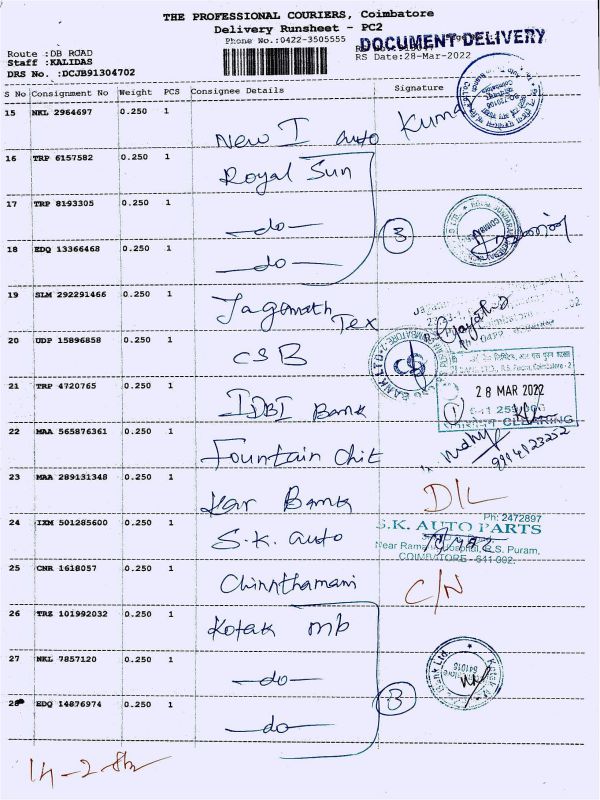 THE PROFESSIONAL COURIERS, Coimbatore
Delivery Runsheet - PC2
Phone No.:0422-3505555
DOCUMENT DELIVERY
Route :DB ROAD
Staff :KALIDAS
RS Date:28-Mar-2022
DRS No. :DCJB91304702
S No Consignment No Weight PCS Consignee Details Signature
15 NKL 2964697 0.250 1 New I auto Kuma
16 TRP 6157582 0.250 1 Royal Sun
17 TRP 8193305 0.250 1 -do- 3
18 EDQ 13366468 0.250 1 -do-
19 SLM 292291466 0.250 1 Jaganath Tex
20 UDP 15896858 0.250 1 CSB
21 TRP 4720765 0.250 1 IDBI Bank
28 MAR 2022
CLEARING
22 MAA 565876361 0.250 1 Fountain chit
23 MAA 289131348 0.250 1 Kar Bank D/L
24 IXM 501285600 0.250 1 S.K. auto
Ph: 2472897
S.K. AUTO PARTS
Near Hospital, R.S. Puram,
COIMBATORE - 641 002.
25 CNR 1618057 0.250 1 Chinnthamani C/N
26 TRZ 101992032 0.250 1 Kotak mb
27 NKL 7857120 0.250 1 -do- 3
28 EDQ 14876974 0.250 1 -do-